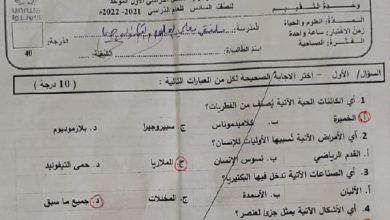 وحدة التقييم
لصف السادس للعام الدراسي 2021-2022م
المبحث: العلوم والحياة
زمن الاختبار: ساعة واحدة
الفترة: الصباحية
المدرسة:
اسم الطالب/ة:
الشعبة:
الدرجة:
40
السؤال الأول - اختر الاجابة الصحيحة لكل من العبارات التالية : ( 10 درجة )
1. أي الكائنات الحية الآتية يصنف من الفطريات؟
أ. الخميرة ب. كلاميدوموناس ج. سبيروجيرا د. بلازموديوم
2. أي الأمراض الآتية تسببها الأوليات للإنسان؟
أ. القدم الرياضي ب. تسوس الإنسان ج. الملاريا د. حمى التيفوئيد
3. أي الصناعات الآتية تدخل فيها البكتيريا؟
أ. الألبان ب. الأسمدة ج. المخللات د. جميع ما سبق
4. أي الأشكال الآتية يمثل جزئ لعنصر؟